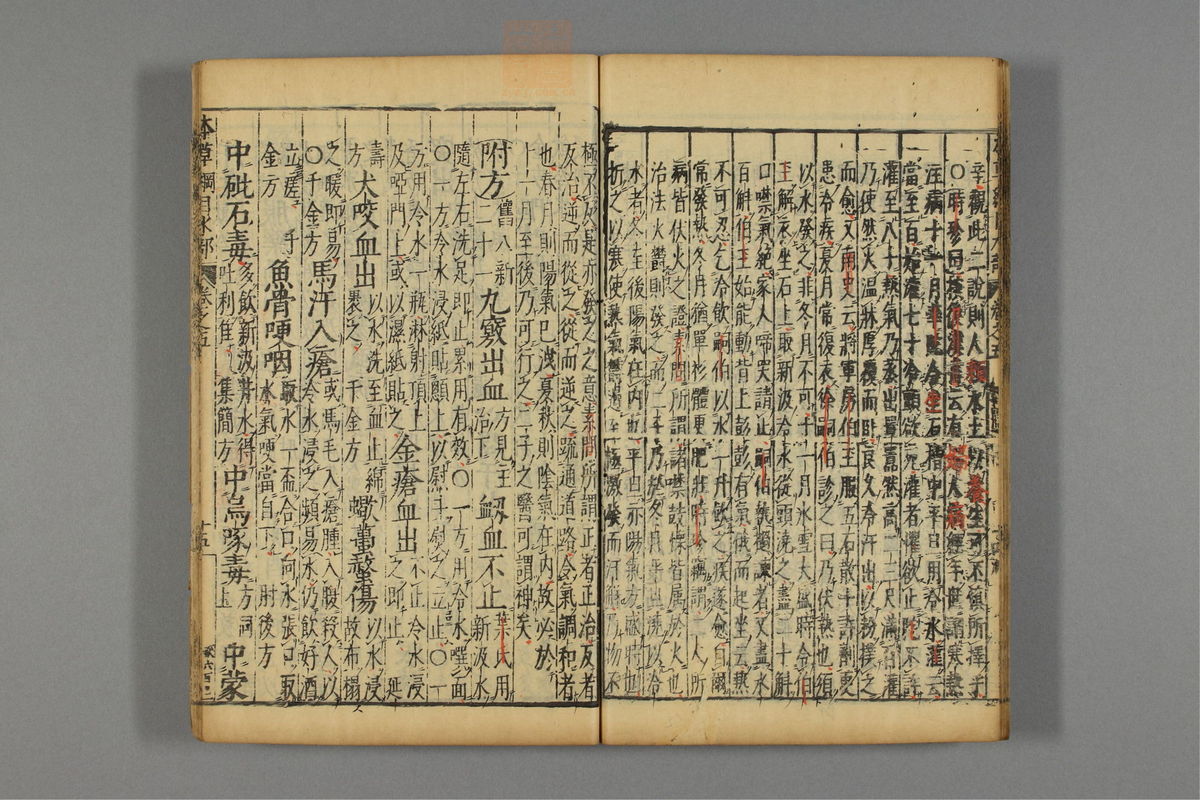 辛觀此二說則人賴水土以養生可不慎所擇乎
〇時珍曰按後漢書云有婦人病經年世謂寒熱
注病十一月華陀令坐石槽中平旦用冷水灌云
當至百始灌七十冷顫欲死灌者懼欲止陀不許
灌至八十熱氣乃蒸出囂囂然高二三尺滿百灌
乃使然火溫牀厚覆而臥良久冷汗出以粉撲之
而愈又南史云將軍房伯玉服五石散十許劑更
患冷疾夏月常復衣徐嗣伯診之曰乃伏熱也須
以水發之非冬月不可十一月冰雪大盛時令伯
玉解衣坐石上取新汲冷水從頭澆之盡二十斛
口噤氣絕家人啼哭請止嗣伯執撾諫者又盡水
百斛伯玉始能動背上彭彭有氣俄而起坐云熱
不可忍乞冷飲嗣伯以水一升飲之疾遂愈自爾
常發熱冬月猶單衫體更肥壯時珍竊謂二人所
病皆伏火之證素問所謂諸噤鼓慄皆屬於火也
治法火鬱則發之而二子乃於冬月平旦澆以冷
水者冬至後陽氣在內也平旦亦陽氣方盛時也
折之以寒使熱氣鬱遏至極激發而汗解乃物不
極不反是亦發之之意素問所謂正者正治反者
反治逆而從之從而逆之疏通道路令氣調和者
也春月則陽氣已泄夏秋則陰氣在內故必於
十一月至後乃可行之二子之醫可謂神矣
附方舊八新二十一九竅出血方見主治下衄血不止葉氏用新汲水
隨左右洗足即止累用有效〇一方用冷水噀面
〇一方冷水浸紙貼顖上以熨斗熨之立止〇一
方用冷水一瓶淋射頂上及啞門上或以濕紙貼之金瘡血出不止冷水浸之即止延
壽方犬咬血出以水洗至血止綿裹之千金方蠍蠆螫傷以水浸故布搨
之暖即易千金方馬汗入瘡或馬毛入瘡腫入腹殺人以冷水浸之頻易水仍飲好酒
立瘥千金方魚骨哽咽取水一盃合口向水張口取水氣哽當自下肘後方
中砒石毒多飲新汲井水得吐利佳集簡方中烏喙毒方同上中蒙
本草綱目水部 卷之五 十五